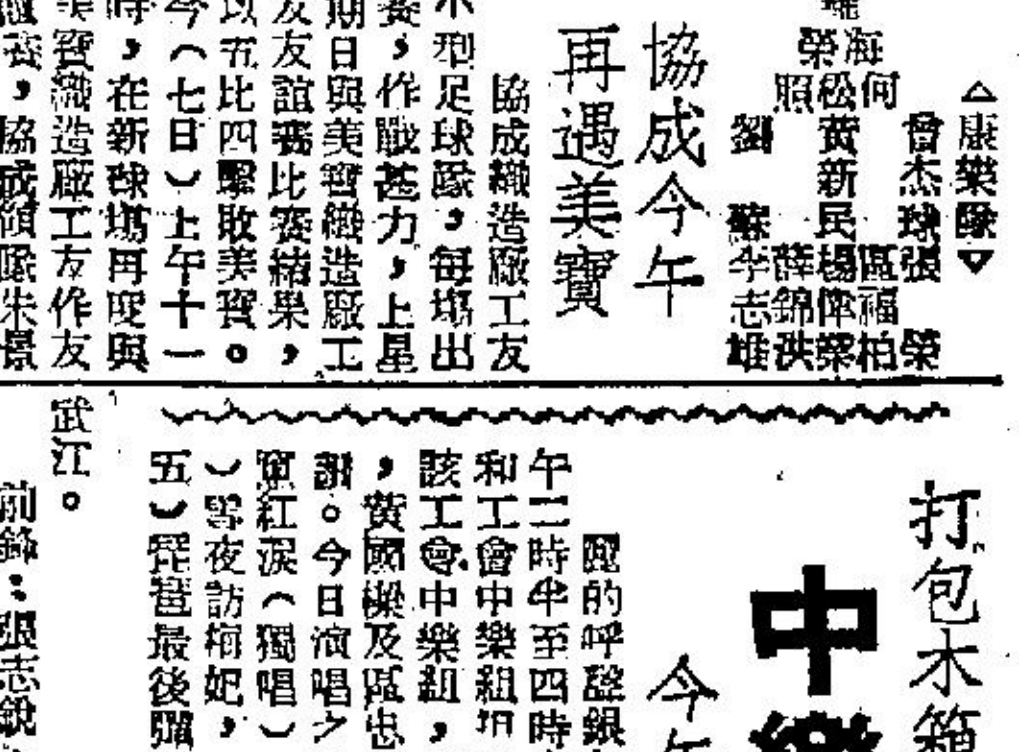 △康樂隊▽
曾杰球張榮
區福柏
海何
松黃新民楊偉榮
榮照
薛錦洪
劉蘇李志雄
協成今午
再遇美寶
協成織造廠工友
小型足球隊，每塲出
賽，作戰甚力，上星
期日與美寶織造廠工
友友誼賽比賽結果，
以五比四擊敗美寶。
今（七日）上午十一
時，在新球塲再度與
美寶織造廠工友作友
誼賽，協成領隊朱景
打包木箱
中樂
今午
的呼聲銀
午二時半至四時
和工會中樂組
該工會中樂組，
，黃國樑及區忠
謝。今日演唱之
紅淚（獨唱）
）雪夜訪梅妃，
五）琵琶最後彈
武江。
前鋒：張志銳